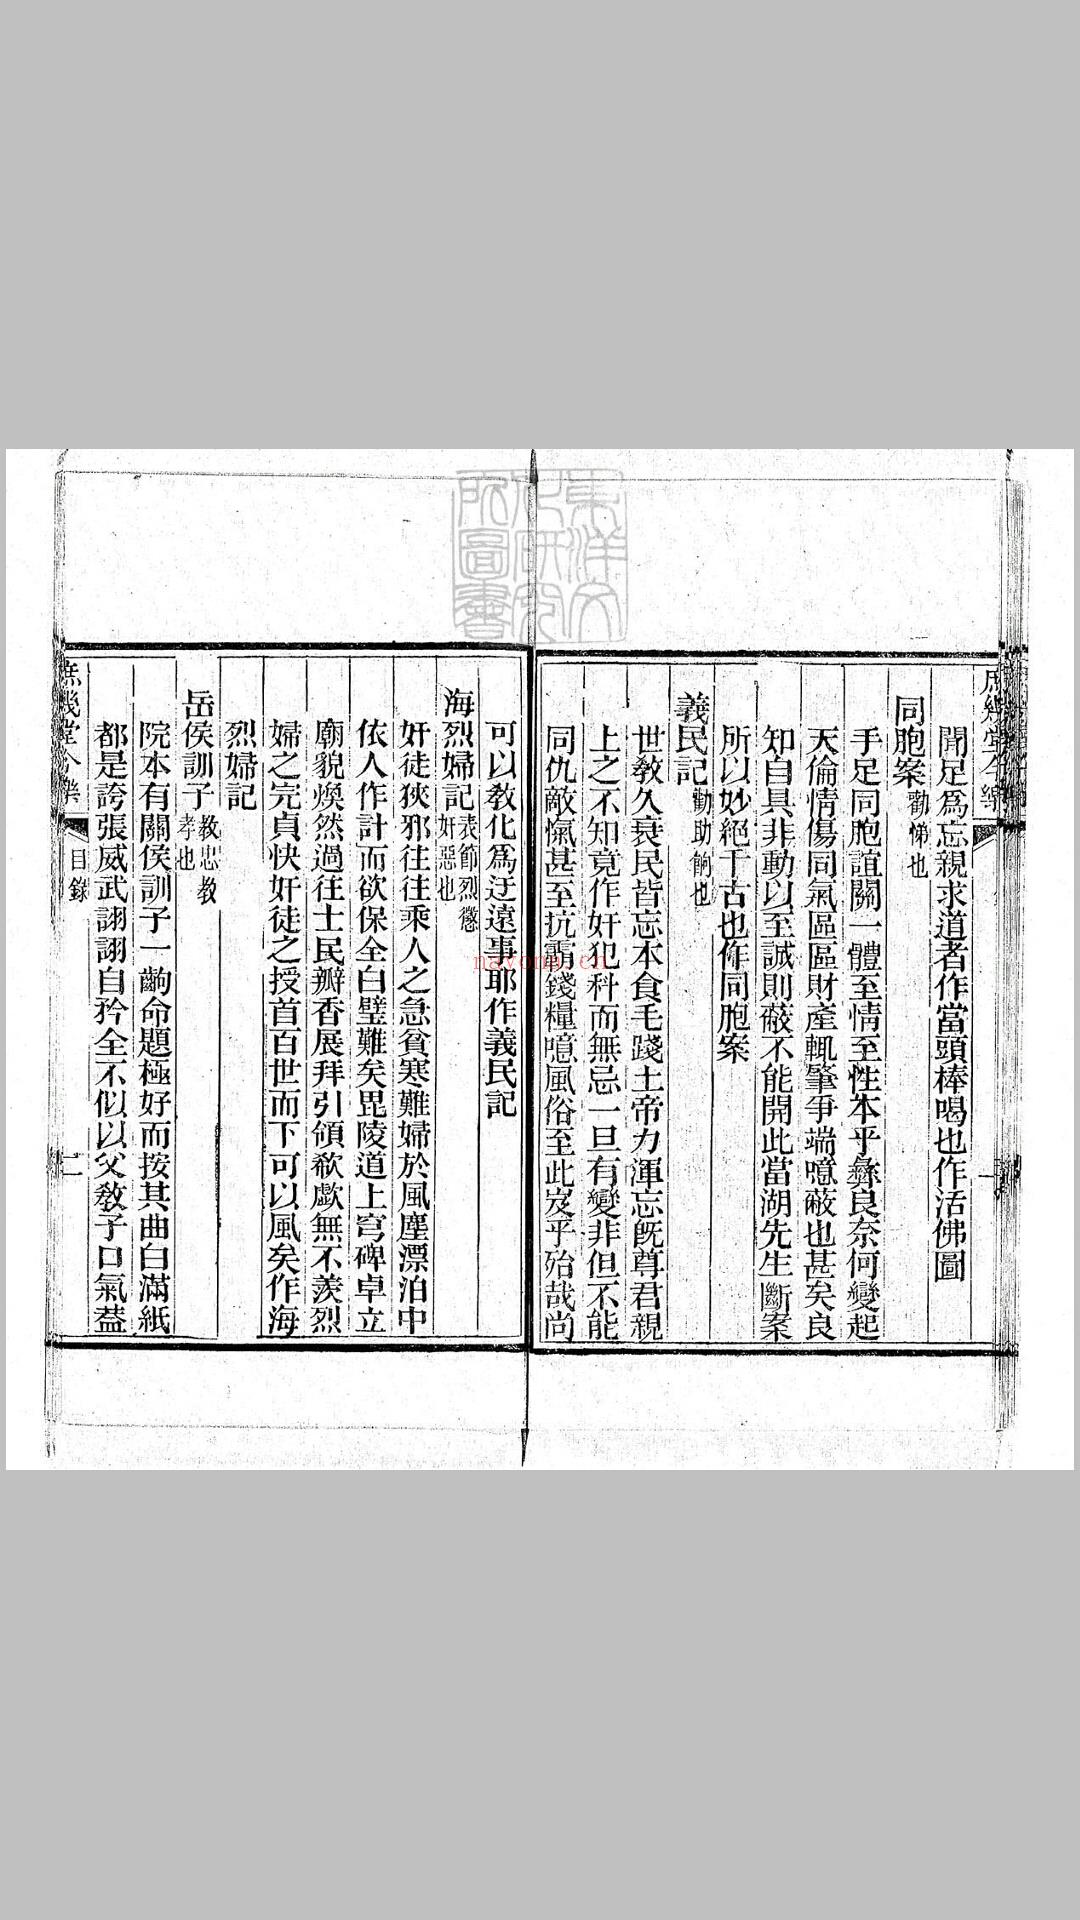 庶幾堂今樂
聞足爲忘親求道者作當頭棒喝也作活佛圖
同胞案 勸悌也
手足同胞誼關一體至情至性本乎彝良奈何變起
天倫情傷同氣區區財產輒肇爭端噫蔽也甚矣良
知自具非動以至誠則蔽不能開此當湖先生斷案
所以妙絕千古也作同胞案
義民記 勸助餉也
世敎久衰民皆忘本食毛踐土帝力渾忘旣尊君親
上之不知竟作奸犯科而無忌一旦有變非但不能
同仇敵愾甚至抗霸錢糧噫風俗至此岌乎殆哉尚
可以敎化爲迂遠事耶作義民記
海烈婦記 表節烈懲奸惡也
奸徒狹邪往往乘人之急貧寒難婦於風塵漂泊中
依人作計而欲保全白璧難矣毘陵道上穹碑卓立
廟貌煥然過往士民瓣香展拜引領欷歔無不羨烈
婦之完貞快奸徒之授首百世而下可以風矣作海
烈婦記
岳侯訓子 教忠教孝也
院本有關侯訓子一齣命題極好而按其曲白滿紙
都是誇張威武詡詡自矜全不似以父敎子口氣葢
庶幾堂今樂 目錄 二
東洋文化研究所圖書
nayona.cn